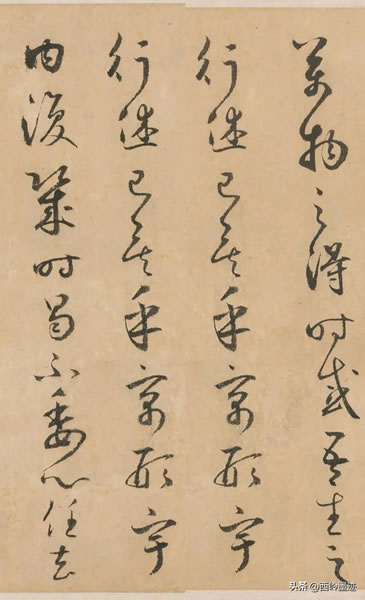 萬物之得時感吾生之
行休已矣乎寓形宇
行休已矣乎寓形宇
内復幾時曷不委心任去
头条 @西岭墨迹